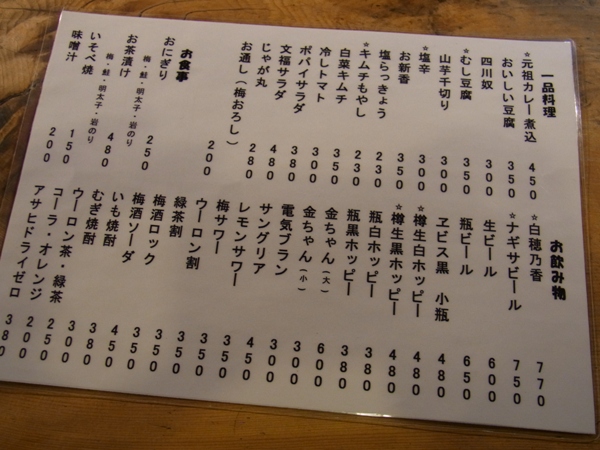 一品料理
☆元祖カレー煮込 450
おいしい豆腐 350
四川奴 300
☆むし豆腐 350
山芋千切り 300
☆塩辛 300
お新香 350
塩らっきょう 230
☆キムチもやし 230
白菜キムチ 350
冷しトマト 300
ポパイサラダ 380
文福サラダ 480
じゃが丸 280
お通し(梅おろし) 200
お食事
おにぎり
梅・鮭・明太子・岩のり 250
お茶漬け
梅・鮭・明太子・岩のり 480
いそべ焼 150
味噌汁 200
お飲み物
☆白穂乃香 770
☆ナギサビール 750
生ビール 600
瓶ビール 650
ヱビス黒 小瓶 480
☆樽生白ホッピー 480
☆樽生黒ホッピー 480
瓶白ホッピー 380
瓶黒ホッピー 380
金ちゃん(大) 600
金ちゃん(小) 300
電気ブラン 300
サングリア 450
レモンサワー 350
梅サワー 350
ウーロン割 350
緑茶割 350
梅酒ロック 350
梅酒ソーダ 450
いも焼酎 380
むぎ焼酎 300
ウーロン茶・緑茶 250
コーラ・オレンジ 200
アサヒドライゼロ 380